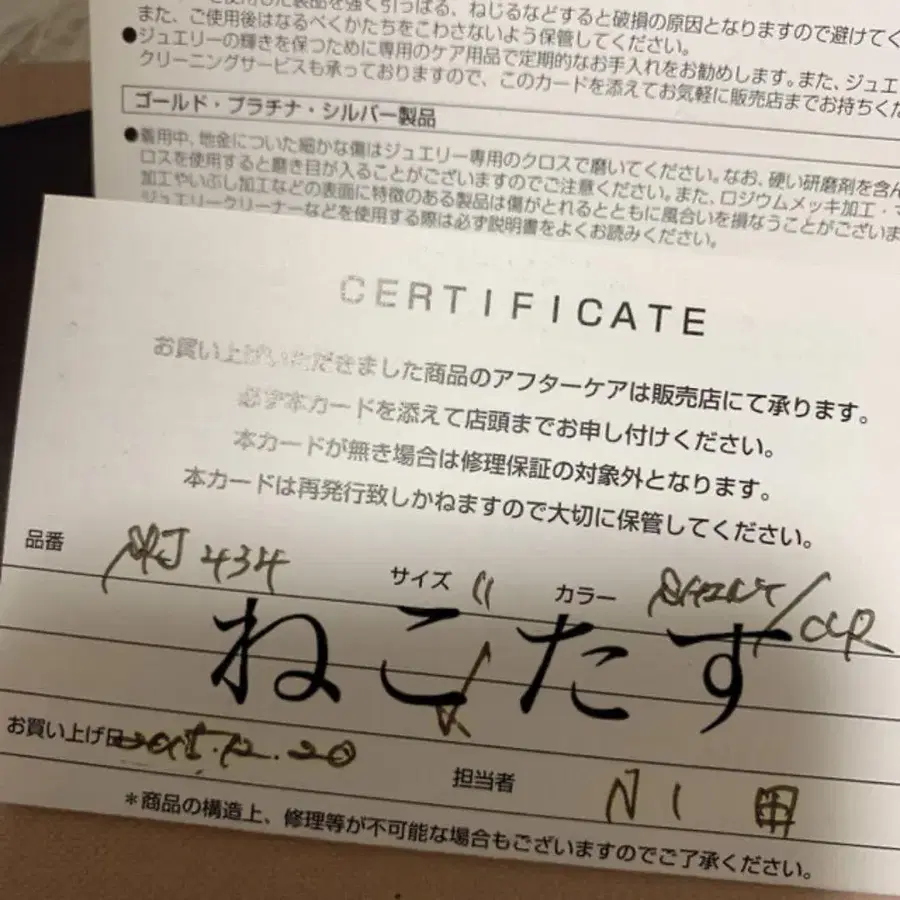 した製品を強く引っぱる、ねじるなどすると破損の原因となりますので避けてく
また、ご使用後はなるべくかたちをこわさないよう保管してください。
●ジュエリーの輝きを保つために専用のケア用品で定期的なお手入れをお勧めします。また、ジュエ
クリーニングサービスも承っておりますので、このカードを添えてお気軽に販売店までお持ちくだ
ゴールド・プラチナ・シルバー製品
●着用中、地金についた細かな傷はジュエリー専用のクロスで磨いてください。なお、硬い研磨剤を含ん
ロスを使用すると磨き目が入ることがございますのでご注意ください。また、ロジウムメッキ加工・マ
加工やいぶし加工などの表面に特徴のある製品は傷がとれるとともに風合いを損なうことがございま
ジュエリークリーナーなどを使用する際は必ず説明書をよくお読みください。
CERTIFICATE
お買い上げいただきました商品のアフターケアは販売店にて承ります。
必ず本カードを添えて店頭までお申し付けください。
本カードが無き場合は修理保証の対象外となります。
本カードは再発行致しかねますので大切に保管してください。
品番 434 サイズ 11 カラー
ねこたす
お買い上げ日 2015.12.20 担当者
＊商品の構造上、修理等が不可能な場合もございますのでご了承ください。